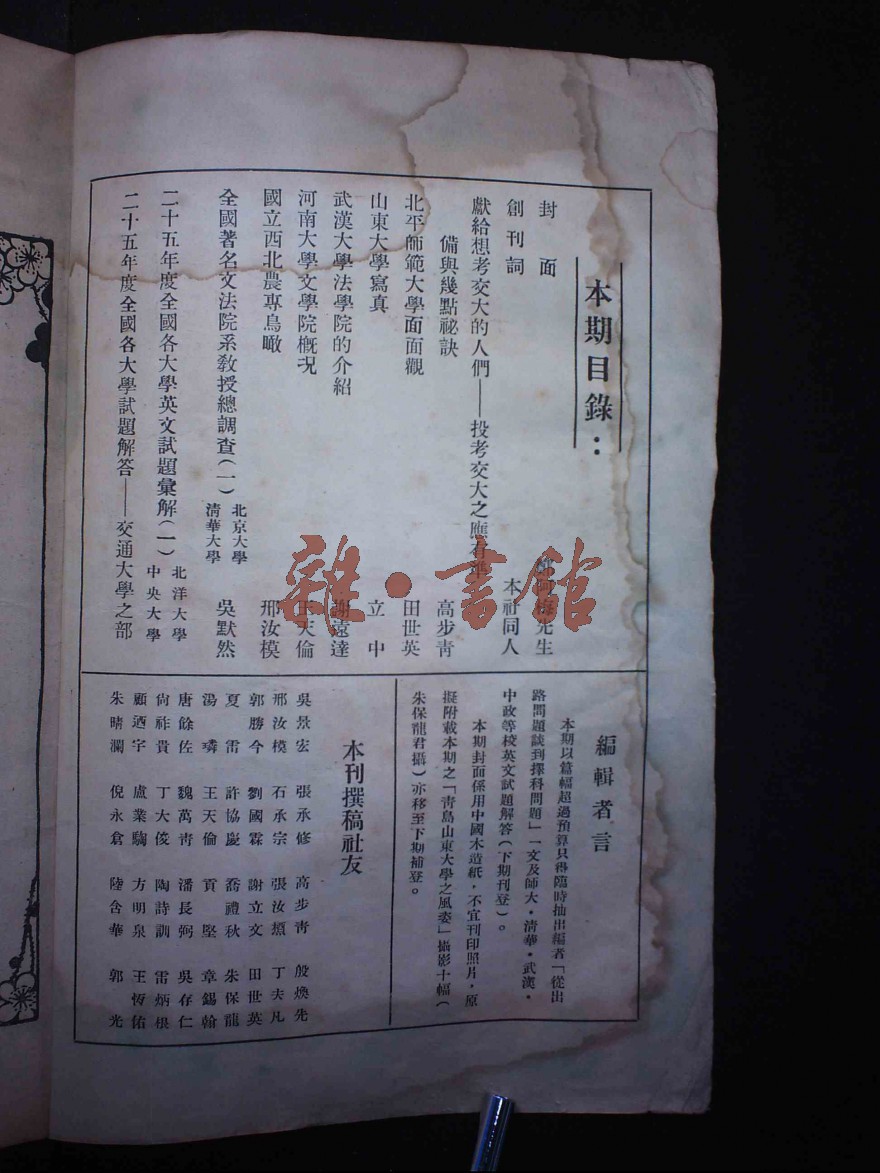 本期目錄：
封面　　　　　　先生
創刊詞　　　　　本社同人
獻給想考交大的人們——投考交大之應有準
備與幾點祕訣　　高步青
北平師範大學面面觀　　田世英
山東大學寫真　　立中
武漢大學法學院的介紹　　謝遠達
河南大學文學院概況　　王天倫
國立西北農專鳥瞰　　邢汝模
全國著名文法院系教授總調查（一）北京大學 清華大學　　吳默然
二十五年度全國各大學英文試題彙解（一）北洋大學 中央大學
二十五年度全國各大學試題解答——交通大學之部
編輯者言
本期以篇幅超過預算只得臨時抽出編者「從出
路問題談到擇科問題」一文及師大・清華・武漢・
中政等校英文試題解答（下期刊登）。
本期封面係用中國木造紙，不宜刊印照片，原
擬附載本期之「青島山東大學之風姿」攝影十幅（
朱保龍君攝）亦移至下期補登。
本刊撰稿社友
吳景宏　張承修　高步青　殷煥先
邢汝模　石承宗　張汝　丁夫凡
郭勝今　劉國霖　謝立文　田世英
夏雷　許協慶　喬禮秋　朱保龍
湯璘　王天倫　貢堅　章錫翰
唐餘佐　魏萬青　潘長弼　吳存仁
尙祚貴　丁大俊　陶詩訓　雷炳根
顧迺宇　盧業騊　方明泉　王恆佑
朱晴瀾　倪永倉　陸含華　郭光
雜・書館